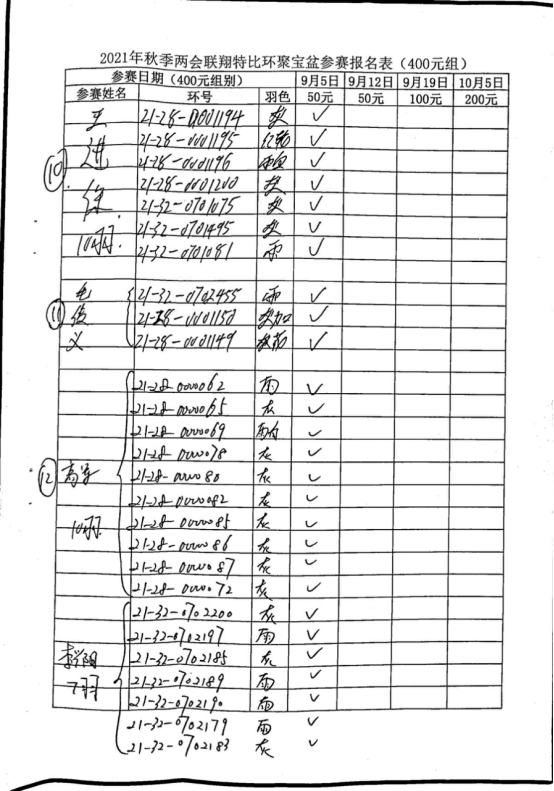 2021年秋季两会联翔特比环聚宝盆参赛报名表（400元组）
参赛日期（400元组别） 9月5日 9月12日 9月19日 10月5日
参赛姓名 环号 羽色 50元 50元 100元 200元
21-28-0001194 灰 ✓
21-28-0001195 ✓
⑩ 进 21-28-0001196 ✓
21-28-0001200 灰 ✓
21-32-0701075 灰 ✓
21-32-0701495 灰 ✓
10羽 21-32-0701081 雨 ✓
21-32-0702455 雨 ✓
⑪ 21-28-0001150 ✓
义 21-28-0001149 ✓
21-28-0000062 雨 ✓
21-28-0000065 灰 ✓
21-28-0000069 雨白 ✓
21-28-0000078 灰 ✓
⑫ 高 21-28-0000080 灰 ✓
21-28-0000082 灰 ✓
10羽 21-28-0000085 灰 ✓
21-28-0000086 灰 ✓
21-28-0000087 灰 ✓
21-28-0000072 灰 ✓
21-32-0702200 灰 ✓
21-32-0702197 雨 ✓
21-32-0702185 灰 ✓
7羽 21-32-0702189 雨 ✓
21-32-0702190 雨 ✓
21-32-0702179 雨 ✓
21-32-0702183 灰 ✓